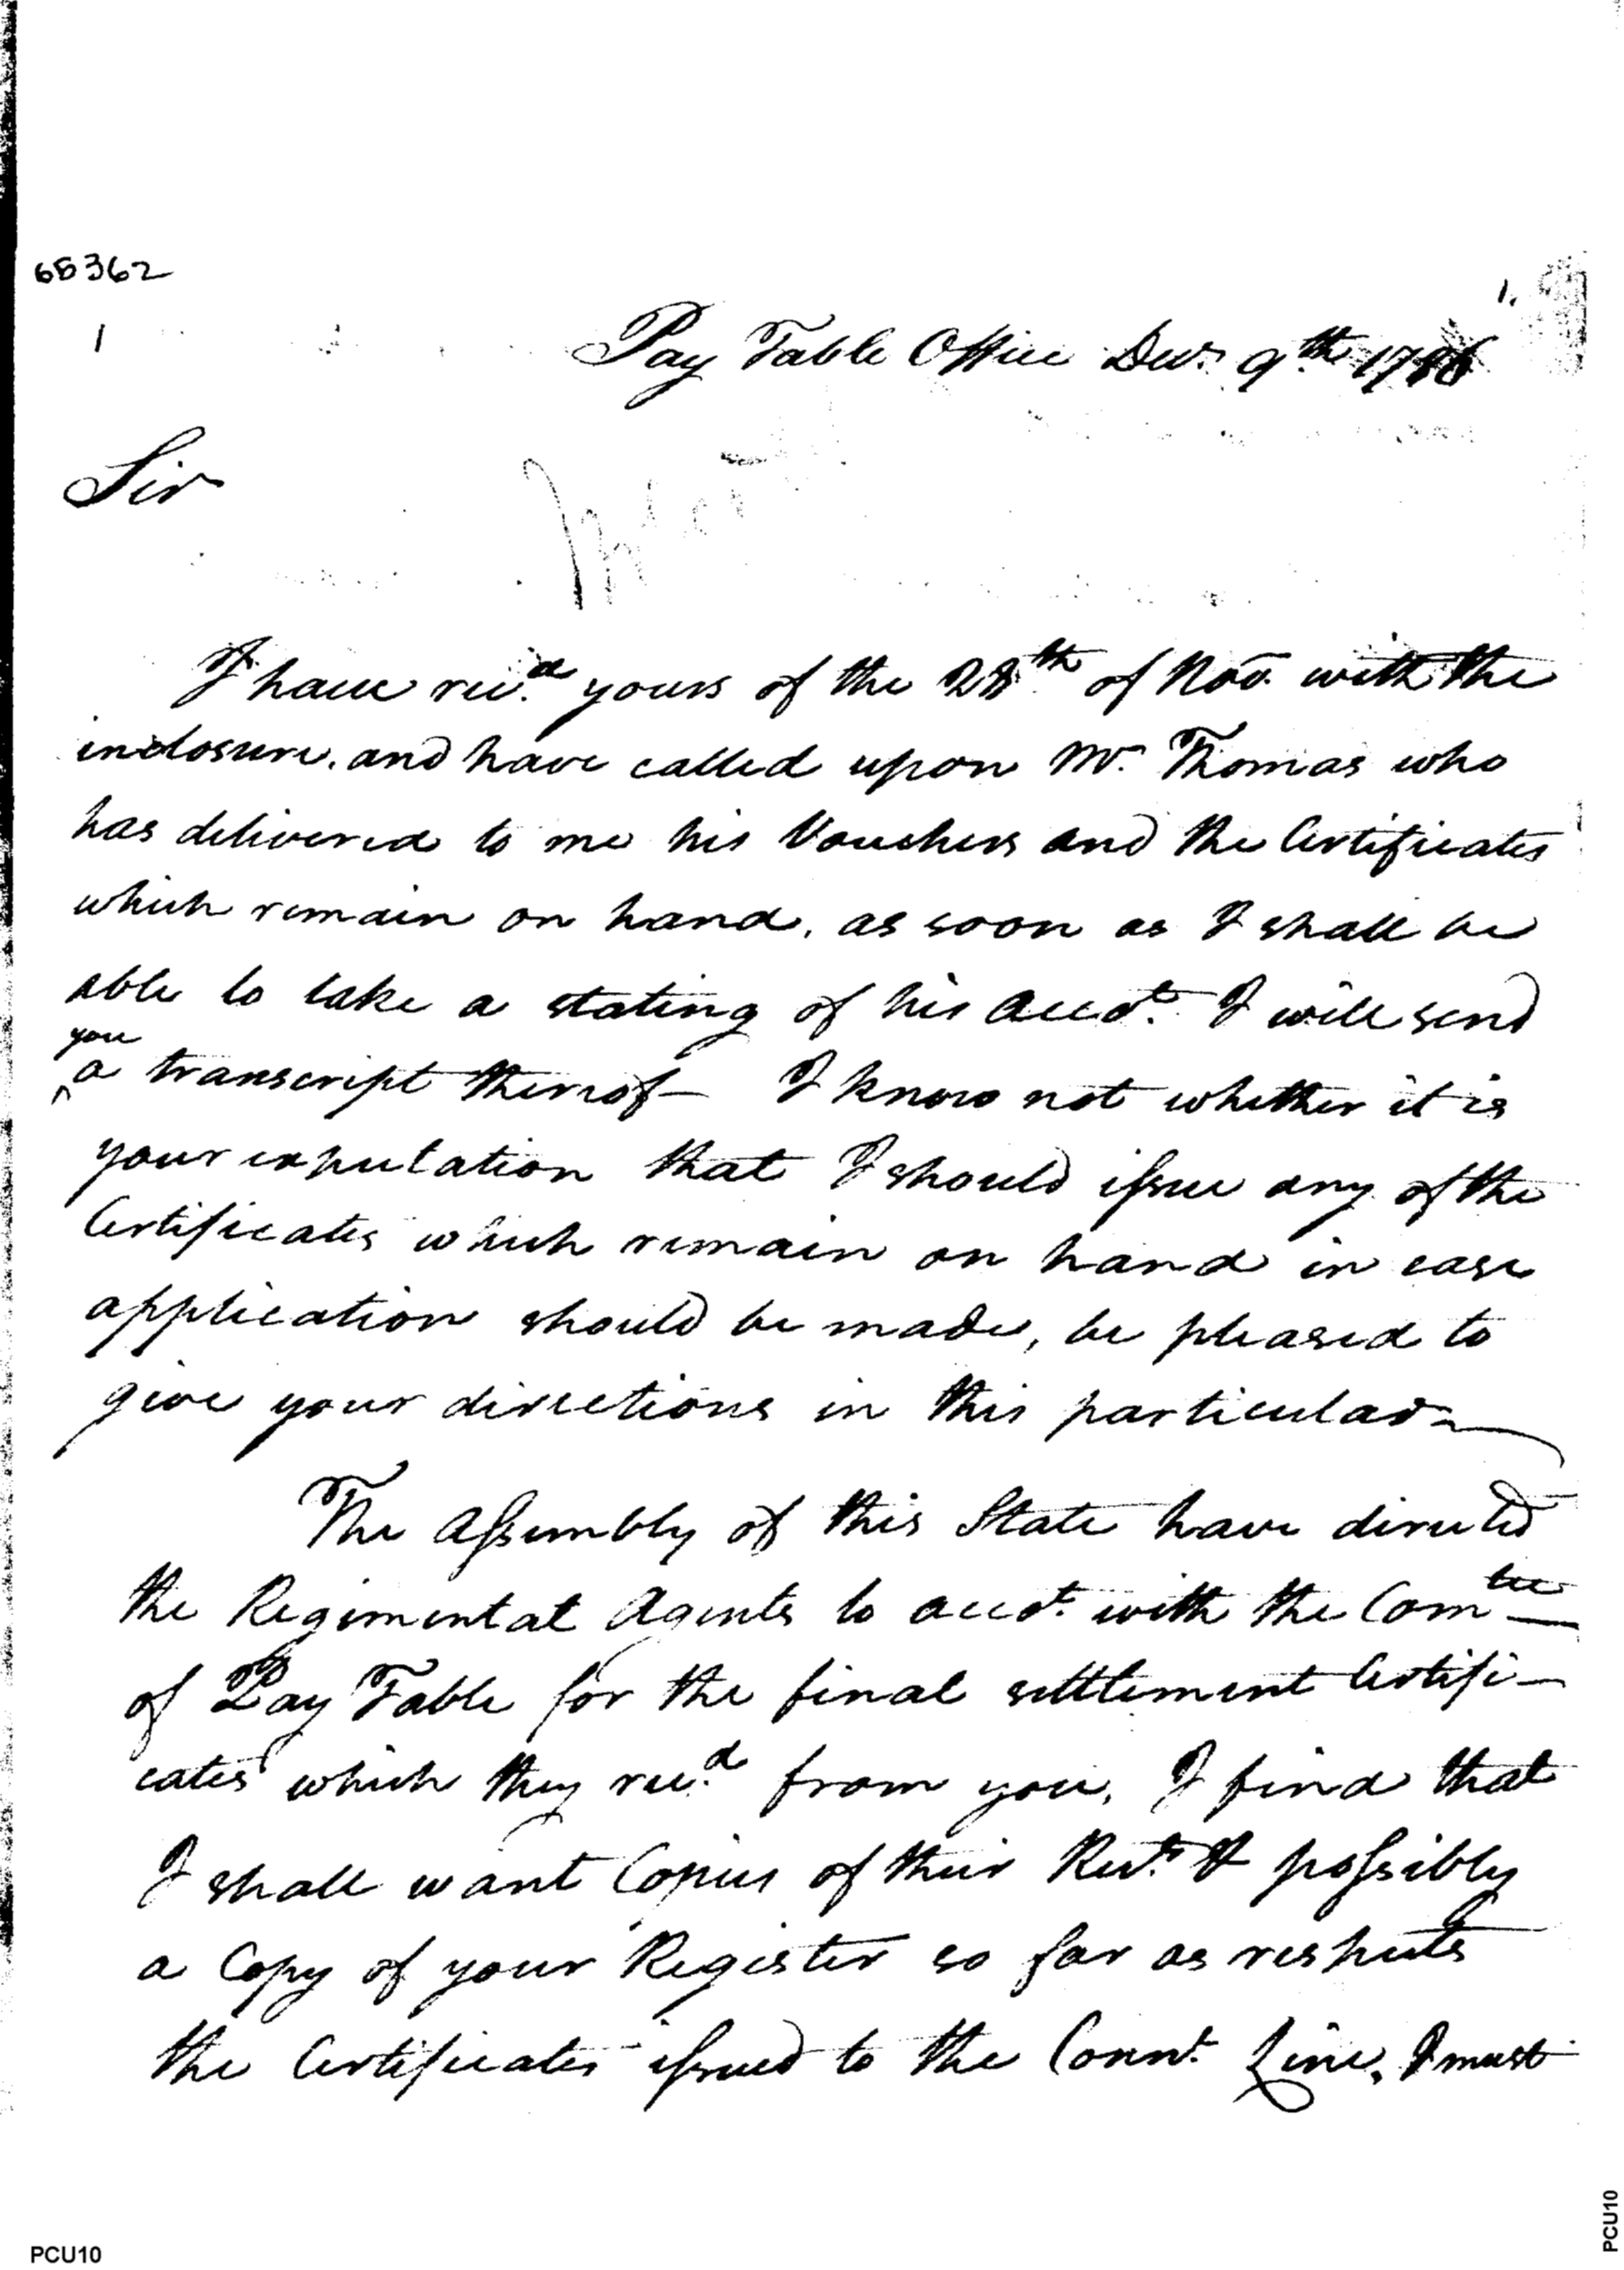 65362
1
1.
Pay Table Office Decr. 9th. 1786
Sir
I have recd. yours of the 28th of Nov. with the
inclosure, and have called upon Mr. Thomas who
has delivered to me his Vouchers and the Certificates
which remain on hand, as soon as I shall be
able to take a stating of his Accot. I will send
you
^a transcript thereof— I know not whether it is
your expectation that I should issue any of the
Certificates which remain on hand in case
application should be made, be pleased to
give your directions in this particular—
The Assembly of this State have directed
the Regimental Agents to accot. with the Comtee
of Pay Table for the final settlement Certifi-
cates which they recd. from you, I find that
I shall want Copies of their Rects. & possibly
a Copy of your Register so far as respects
the Certificates issued to the Connt. Line, I must
PCU10
PCU10